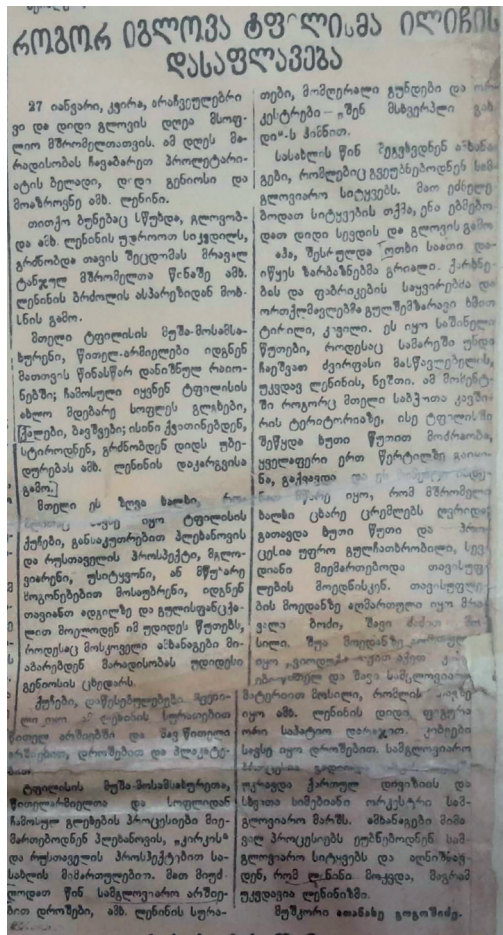 როგორ იგლოვა ტფილისმა ილიჩის
დასაფლავება
27 იანვარი, კვირა, არაჩვეულებრი
ვი და დიდი გლოვის დღეა მსოფ-
ლიო მშრომელთათვის. ამ დღეს მა-
რადისობას ჩავაბარეთ პროლეტარი-
ატის ბელადი, დიდი გენიოსი და
მოაზროვნე ამხ. ლენინი.
თითქო ბუნებაც სწუხდა, გლოვობ-
და ამხ. ლენინის უდროოთ სიკვდილს,
გრძნობდა თავის შეცდომას მრავალ
ტანჯულ მშრომელთა წინაშე ამხ.
ლენინის ბრძოლის ასპარეზიდან მოხ-
სნის გამო.
მთელი ტფილისის მუშა-მოსამსა-
ხურენი, წითელ-არმიელები იდგნენ
მათთვის წინასწარ დანიშნულ რაიო-
ნებში; ჩამოსული იყვნენ ტფილისის
ახლო მდებარე სოფლეს გლეხები,
ქალები, ბავშვები; ისინი ქვითინებდენ,
სტიროდნენ, გრძნობდენ დიდს უბე-
დურებას ამხ. ლენინის დაკარგვისა
გამო.
მთელი ეს ზღვა ხალხი,
სავსე იყო ტფილისის
ქუჩები, განსაკუთრებით პლეხანოვის
და რუსთაველის პროსპექტი, მგლო-
ვიარენი, უსიტყვონი, ან მწუხარე
მოგონებებით მოსაუბრენი, იდგნენ
თავიანთ ადგილზე და გულისფანცქა-
ლით მოელოდენ იმ უდიდეს წუთებს,
როდესაც მოსკოველი ამხანაგები მი-
აბარებდენ მარადისობას უდიდესი
გენიოსის ცხედარს.
ქუჩები, დაწესებულებები
ლი იყო ლენინის სურათებით
წითელ არშიებში და შავ წითელი
არშიებით, დროშებით და პლაკატე-
ბით
ტფილისის მუშა-მოსამსახურეთა,
წითელარმიელთა და სოფლიდან
ჩამოსულ გლეხების პროცესიები მიე-
მართებოდნენ პლეხანოვის, „კირკის“
და რუსთაველის პროსპექტებით სა-
სახლის მიმართულებით. მათ მიუძ
ღოდათ წინ სამგლოვიარო არშიე-
ბით დროშები, ამხ. ლენინის სურა-
თები, მომღერალი გუნდები და ორ
კესტრები – „შენ მსხვერპლი გახ
დი“-ს ჰიმნით.
სასახლის წინ შეგვხვდნენ ამხანა
გები, რომლებიც გვეუბნებოდნენ სამ
გლოვიარო სიტყვებს. მათ ეძნელე
ბოდათ სიტყვების თქმა, ენა ებმებო
დათ დიდი სევდის და გლოვის გამო
აჰა, შესრულდა ოთხი საათი და-
იწყეს ზარბაზნებმა გრიალი. ქარხნე-
ბის და ფაბრიკების საყვირებმა და
ორთქლმავლებმა გულშემზარავი ხმით
ტირილი, კივილი. ეს იყო საშინელი
წუთები, როდესაც სამარეში უნდა
ჩაეშვათ ძვირფასი მასწავლებელის,
უკვდავ ლენინის, ნეშთი. ამ მომენტ-
ში როგორც მთელი საბჭოთა კავში-
რის ტერიტორიაზე, ისე ტფილისში
შეწყდა ხუთი წუთით მოძრაობა,
ყველაფერი ერთ წერტილზე გაიყი-
ნა, გაქვავდა და
მწარე იყო, რომ მშრომელი
ხალხი ცხარე ცრემლებს ღვრიდა
გათავდა ხუთი წუთი და პრო
ცესია უფრო გულჩათხრობილი, სევ-
დიანი მიემართებოდა თავისუფ
ლების მოედნისკენ. თავისუფლე-
ბის მოედანზე აღმართული იყო მრა
ვალი ბოძი, შავი ძაძით მო
სილი. შუა მოედანზე
იყო
და შავი სამგლოვიარო
მატერიით მოსილი, რომლის თავზე
იყო ამხ. ლენინის დიდი ფიგურა
ორი საპატიო დარაჯით. კიბეები
სავსე იყო დროშებით. სამგლოვიარო
პროცესია
უკრავდა ქართულ დივიზიის და
სხვათა სიმებიანი ორკესტრი სამ-
გლოვიარო მარშს. ამხანაგები მიმა
ვალ პროცესიებს ეუბნებოდნენ სამ-
გლოვიარო სიტყვებს და აღნიშნავ-
დენ, რომ ლენინი მოკვდა, მაგრამ
უკვდავია ლენინიზმი.
მუშკორი ათანასე გოგოშიძე.